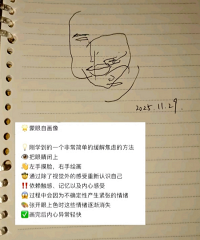 2025.11.29
👋蒙眼自画像
💡刚学到的一个非常简单的缓解焦虑的方法
👁️把眼睛闭上
👋左手摸脸，右手绘画
🤠通过除了视觉外的感受重新认识自己
👣依赖触感、记忆以及内心感受
😱过程中会因为不确定性产生紧张的情绪
🎨张开眼上色时这些情绪逐渐消失
✅画完后内心异常轻快